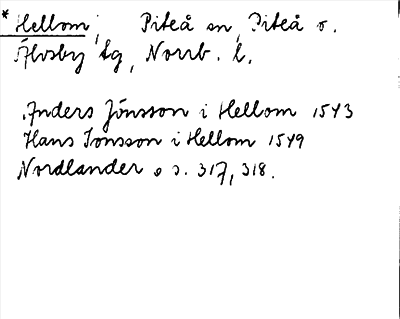 * Hellom, Piteå sn, Piteå o.
Älvsby tg, Norrb. l.
Anders Jönsson i Hellom 1543
Hans Jonsson i Hellom 1549
Nordlander o s. 317, 318.